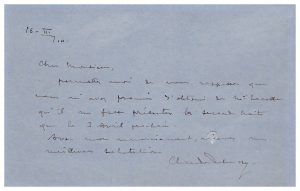 16 - III
/10.
Cher Monsieur,
permettez moi de vous rappeler que
vous m'avez promis d'obtenir de
qu'il ne fasse présenter la seconde traite
que le 3 Avril prochain.
Avec mon remerciement,
meilleure salutation
Claude Debussy